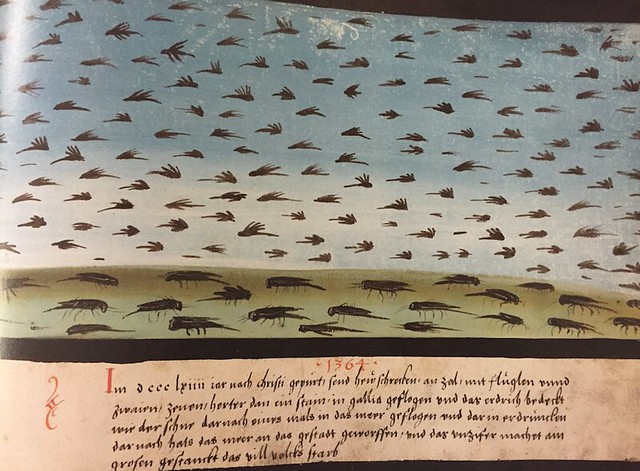 · 1364 ·
Im dccc lxiiii iar nach christi gepurt, send hew schrecken, an zal, mit flüglen vnnd
zwaien, zenen, herter dan ein stain, in gallia geflogen vnd das erdrich bedeckt
wie der schne darnach eines mals in das meer geflogen vnd dar in erdruncken
dar nach hats das meer an das gestadt geworffen, vnd das vnzifer machet ain
grosen gestanck das vill volcks starb